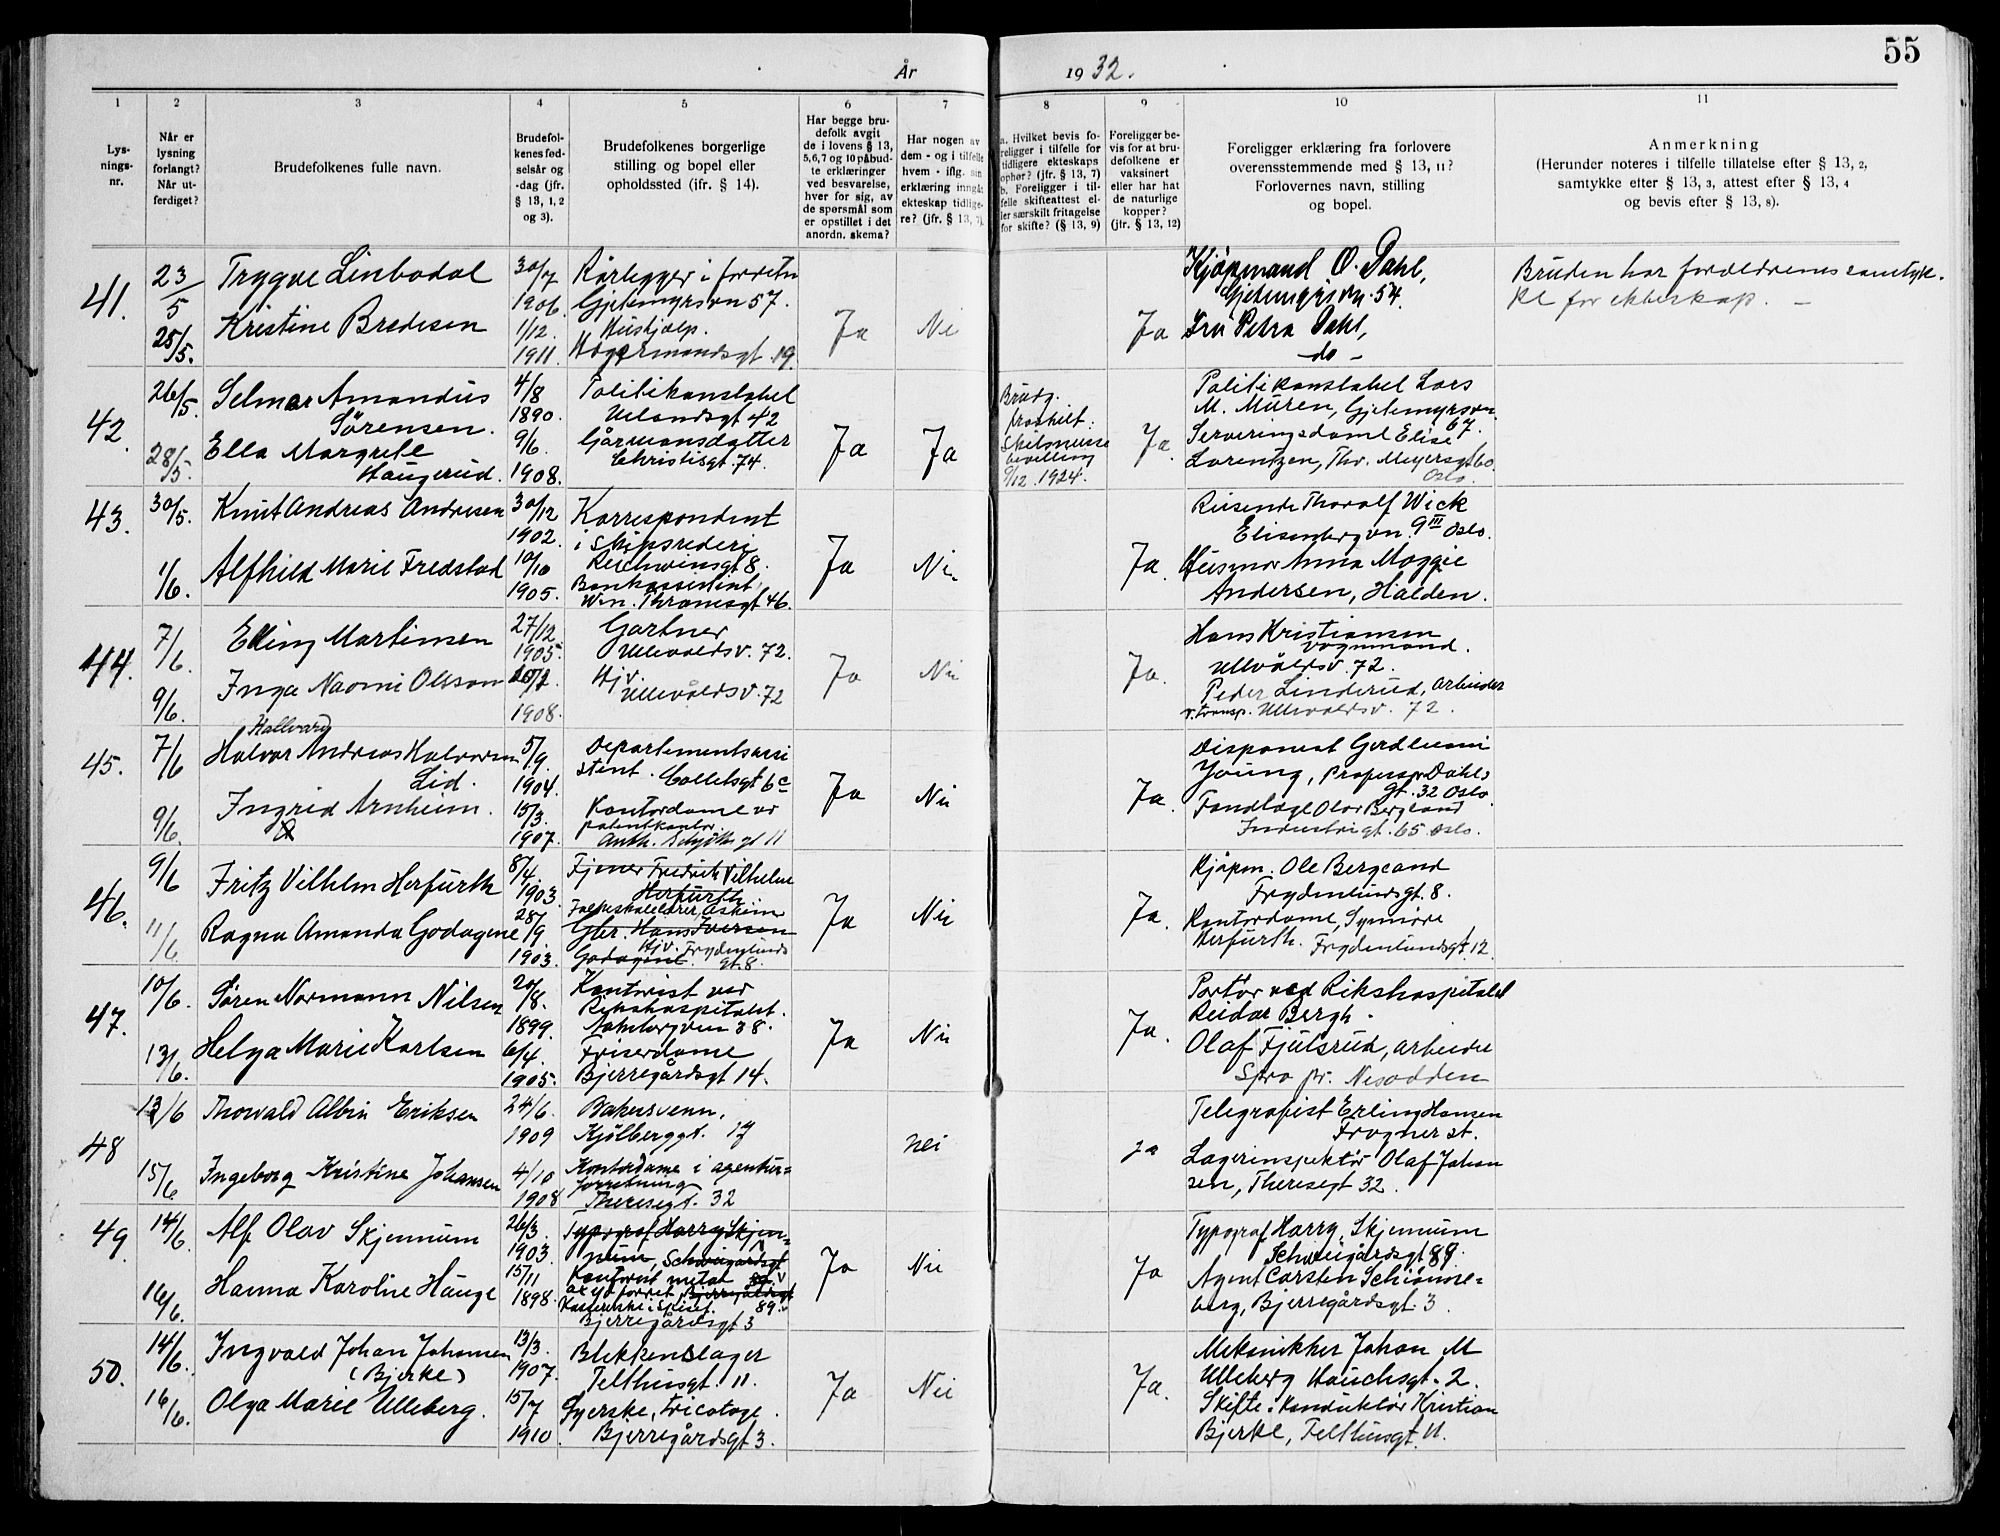 55
År 1932.
1 2 3 4 5 6 7 8 9 10 11
Lysningsnr.
Når er lysning forlangt? Når utferdiget?
Brudefolkenes fulle navn.
Brudefolkenes fødselsår og -dag (jfr. § 13, 1, 2 og 3).
Brudefolkenes borgerlige stilling og bopel eller opholdssted (jfr. § 14).
Har begge brudefolk avgit de i lovens § 13, 5,6,7 og 10 påbudte erklæringer ved besvarelse, hver for sig, av de spørsmål som er opstillet i det anordn. skema?
Har nogen av dem - og i tilfelle hvem - iflg. sin erklæring inngåt ekteskap tidligere? (jfr. § 13, 7).
a. Hvilket bevis foreligger i tilfelle for tidligere ekteskaps ophør? (jfr. § 13, 7)
b. Foreligger i tilfelle skifteattest eller særskilt fritagelse for skifte? (§ 13, 9)
Foreligger bevis for at brudefolkene er vaksinert eller har hat de naturlige kopper? (jfr. § 13, 12)
Foreligger erklæring fra forlovere overensstemmende med § 13, 11? Forlovernes navn, stilling og bopel.
Anmerkning
(Herunder noteres i tilfelle tillatelse efter § 13, 2, samtykke efter § 13, 3, attest efter § 13, 4 og bevis efter § 13, 8).
41. 23/5 25/5.
Trygve Linbodal
Kristine Bredesen
30/7 1906. 1/12. 1911.
Rørlegger i forretn
Gjetemyrsvn 57.
Hushjælp.
Hegermannsgt. 19.
Ja Nei Ja
Kjøpmand O. Dahl,
Gjetemyrsvn. 54.
Fru Petra Dahl,
do -
Bruden har forældrenes samtyk-
ke for ekteskap. -
42. 26/5. 28/5.
Selmar Amandus
Sørensen.
Ella Margrete
Haugerud.
4/8 1890. 9/6. 1908.
Politikonstabel
Uelandsgt 42
Gårmansdatter
Christiesgt. 74.
Ja Ja
Brudg.
fraskilt:
Skilsmisse
bevilling
9/12. 1924.
Ja.
Politikonstabel Lars
M. Muren, Gjetemyrsvn.
67.
Serveringsdame Elise
Lorentzen, Thv. Meyersgt 60
Oslo.
43. 30/5. 1/6.
Knut Andreas Andresen
Alfhild Marie Fredstad
30/12 1902. 10/10 1905.
Korrespondent
i Skipsrederi
Reichweinsgt 8.
Bankassistent,
Wm. Thranesgt 46.
Ja Nei Ja.
Reisende Thoralf Wick
Elisenbergvn. 9 III Oslo.
Husmor Anna Maggie
Andersen, Halden.
44. 7/6. 9/6.
Elling Martinsen
Inga Naomi Olsson
27/12. 1905. 1908.
Gartner
Ullevålsv. 72.
Hjv.
Ullevålsv. 72
Ja Nei Ja.
Hans Kristiansen
vognmand.
Ullvålsv. 72.
Peder Linderud, Arbeider
v. transp. Ullevålsv. 72.
45. 7/6 9/6.
Hallvard
Halvor Andreas Halvorsen
Lid.
Ingrid Arnheim.
5/9. 1904. 15/3. 1907.
Departementsassi
stent. Colletsgt 6c
Kontordame v
patentkontor,
Anth. Schjøths gt 11
Ja Nei Ja.
Disponent Gerdtunni
Young, Professor Dahls
gt. 32 Oslo.
Tandlæge Olav Bergland
Industrigt. 65. Oslo.
46. 9/6 11/6.
Fritz Vilhelm Herfurth
Ragna Amanda Godagene
8/4. 1903. 28/9. 1903.
Tjener Fredrik Vilhelm
Herfurth
Folkeskolelærer, Askim
Gbr. Hans Iversen
Hjv. Frydenlunds
Godagene. gt. 8.
Ja Nei Ja.
Kjøpm. Ole Bergland
Frydenlundsgt. 8.
Kontordame, Synnøve
Herfurth. Frydenlundsgt 12.
47. 10/6. 13/6.
Søren Normann Nilsen
Helga Marie Karlsen
20/8. 1899. 6/4. 1905.
Kontorist ved
Rikshospitalet.
38.
Friserdame
Bjerregårdsgt 14.
Ja Nei Ja.
Portør ved Rikshospitalet
Reidar Bergh.
Olaf Fjulsrud, arbeider
Spro pr. Nesodden
48 13/6 15/6.
Thorvald Albin Eriksen
Ingeborg Kristine Johansen
24/6. 1909 4/10 1908
Bakersvenn,
Kjølberggt. 17
Kontordame i agentur=
forretning
Theresegt. 32
nei ja
Telegrafist Erling Hansen
Frogner st.
Lagerinspektør Olaf Johan
sen, Theresegt 32.
49. 14/6. 16/6.
Alf Olav Skjennum
Hanna Karoline Hauge
26/3. 1903. 15/11 1898.
Typograf Harry Skjen-
num, Schweigårdsgt
Kontorist metal
Bjerregårdsgt
89.
Kassererske i Spiset.
Bjerregårdsgt 3
Ja Nei Ja
Typograf Harry, Skjennum
Schweigårdsgt 89.
Agent Carsten Schiønne=
berg, Bjerregårdsgt. 3.
50. 14/6. 16/6.
Ingvald Johan Johansen
(Bjerke)
Olga Marie Ulleberg.
13/3. 1907. 15/7 1910.
Blikkenslager
Telthusgt. 11.
Syerske, tricotage.
Bjerregårdsgt 3.
Ja Nei Ja.
Mekanikker Johan M
Ulleberg Hauchsgt. 2.
Skifte: konduktør Kristian
Bjerke, Telthusgt. 11.